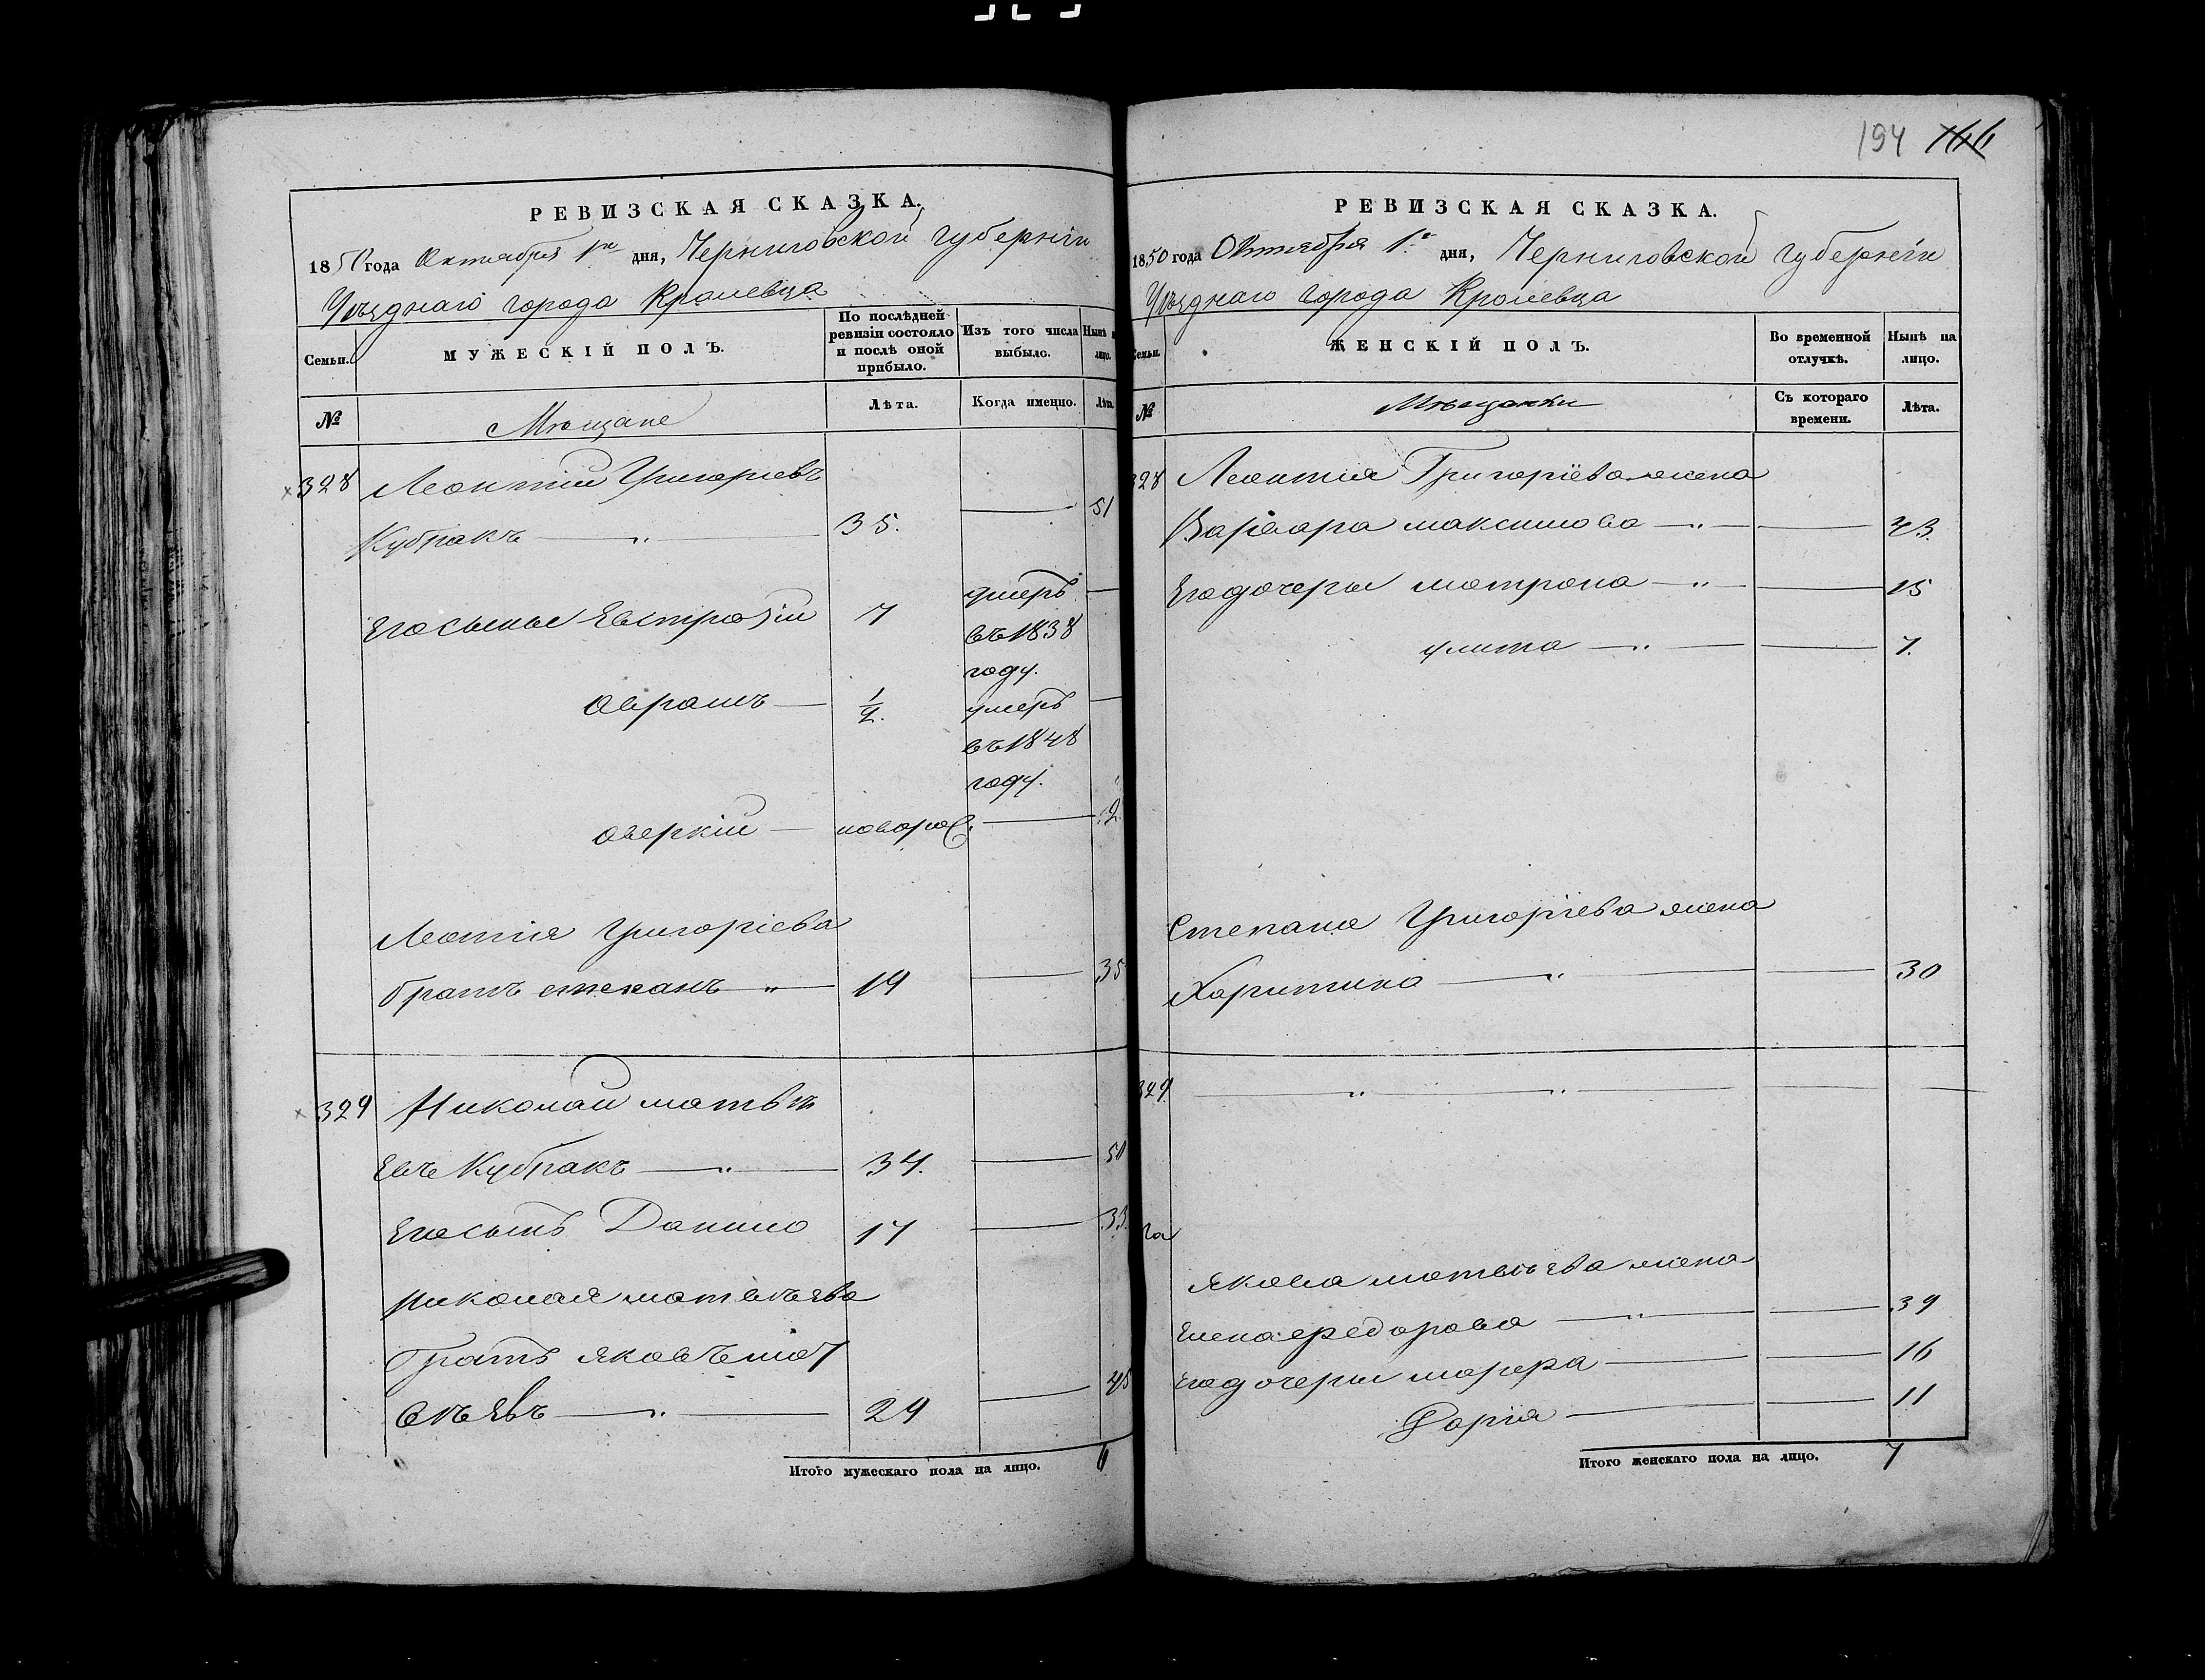 РЕВИЗСКАЯ СКАЗКА.
1850 года Октября 1го дня, Черниговской губерніи
Уѣзднаго города Кролевца
Семьи.
МУЖЕСКІЙ ПОЛЪ.
По послѣдней ревизіи состояло и послѣ оной прибыло.
Изъ того числа выбыло.
Нынѣ
лицо.
№
Мѣщане
Лѣта.
Когда именно.
Лѣта.
328 Леонтій Григоріевъ
Кубракъ 35. 51
Его сыны Евстратій 7 умеръ
въ 1838
году.
Аврамъ ½. умеръ
въ 1848
году.
Аверкій новорож. 2
Леонтія Григоріева
братъ Степанъ 19 35
329 Николай Матвѣ
евъ Кубракъ 34. 50
Его сынъ Данило 17 33.
Николая Матвѣева
братъ Яковъ Мат
вѣевъ 29 45
Итого мужескаго пола на лицо. 6
194 166
РЕВИЗСКАЯ СКАЗКА.
1850 года Октября 1го дня, Черниговской губерніи
Уѣзднаго города Кролевца
Семьи.
ЖЕНСКІЙ ПОЛЪ.
Во временной отлучкѣ.
Нынѣ на лицо.
№
Мѣщанки
Съ котораго времени.
Лѣта.
328 Леонтія Григоріева жена
Варвара Максимова 43.
Его дочери Матрона 15
Улита 7.
Степана Григоріева жена
Харитина 30
329
га
Якова Матвѣева жена
Елена Федорова 39
Его дочери Марфа 16
Дарія 11
Итого женскаго пола на лицо. 7